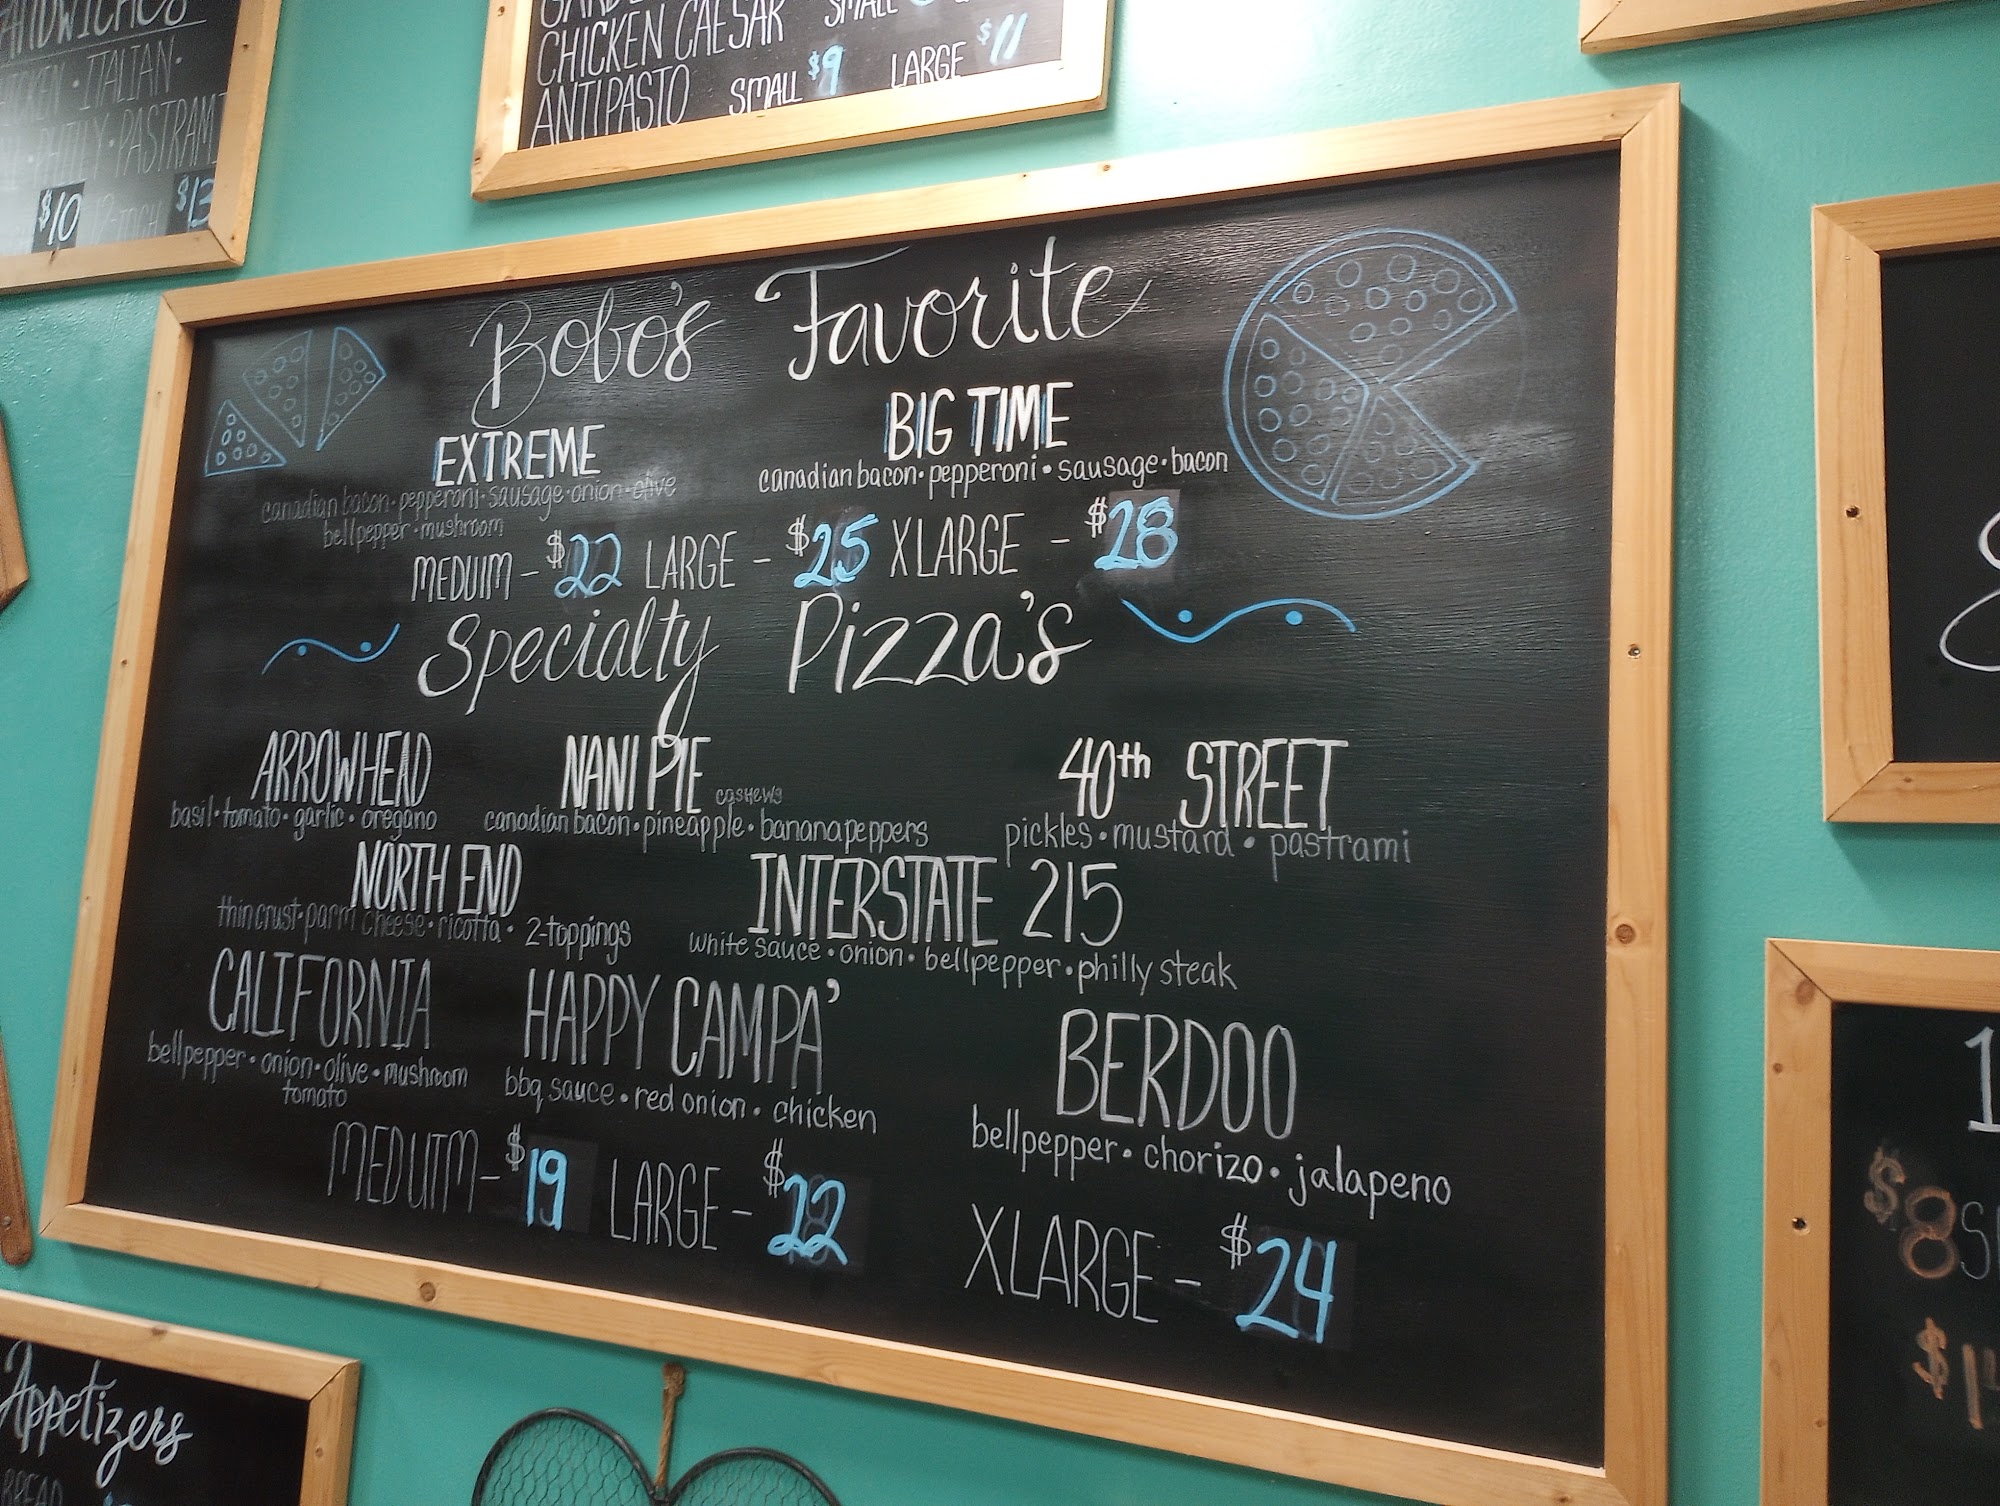 ITALIAN·
PHILY·PASTRAMI
$10 $13
CHICKEN CAESAR SMALL
ANTIPASTO SMALL $9 LARGE $11
Bobo's Favorite
EXTREME
canadian bacon·pepperoni·sausage·onion·olive
bellpepper·mushroom
BIG TIME
canadian bacon·pepperoni·sausage·bacon
MEDUIM-$22 LARGE-$25 XLARGE-$28
Specialty Pizza's
ARROWHEAD
basil·tomato·garlic·oregano
NANI PIE
cashews
canadian bacon·pineapple·bananapeppers
40th STREET
pickles·mustard·pastrami
NORTH END
thin crust·parm cheese·ricotta·2-toppings
INTERSTATE 215
white sauce·onion·bellpepper·philly steak
CALIFORNIA
bellpepper·onion·olive·mushroom
tomato
HAPPY CAMPA'
bbq sauce·red onion·chicken
BERDOO
bellpepper·chorizo·jalapeno
MEDUIM-$19 LARGE-$22 XLARGE-$24
Appetizers
BREAD
$8